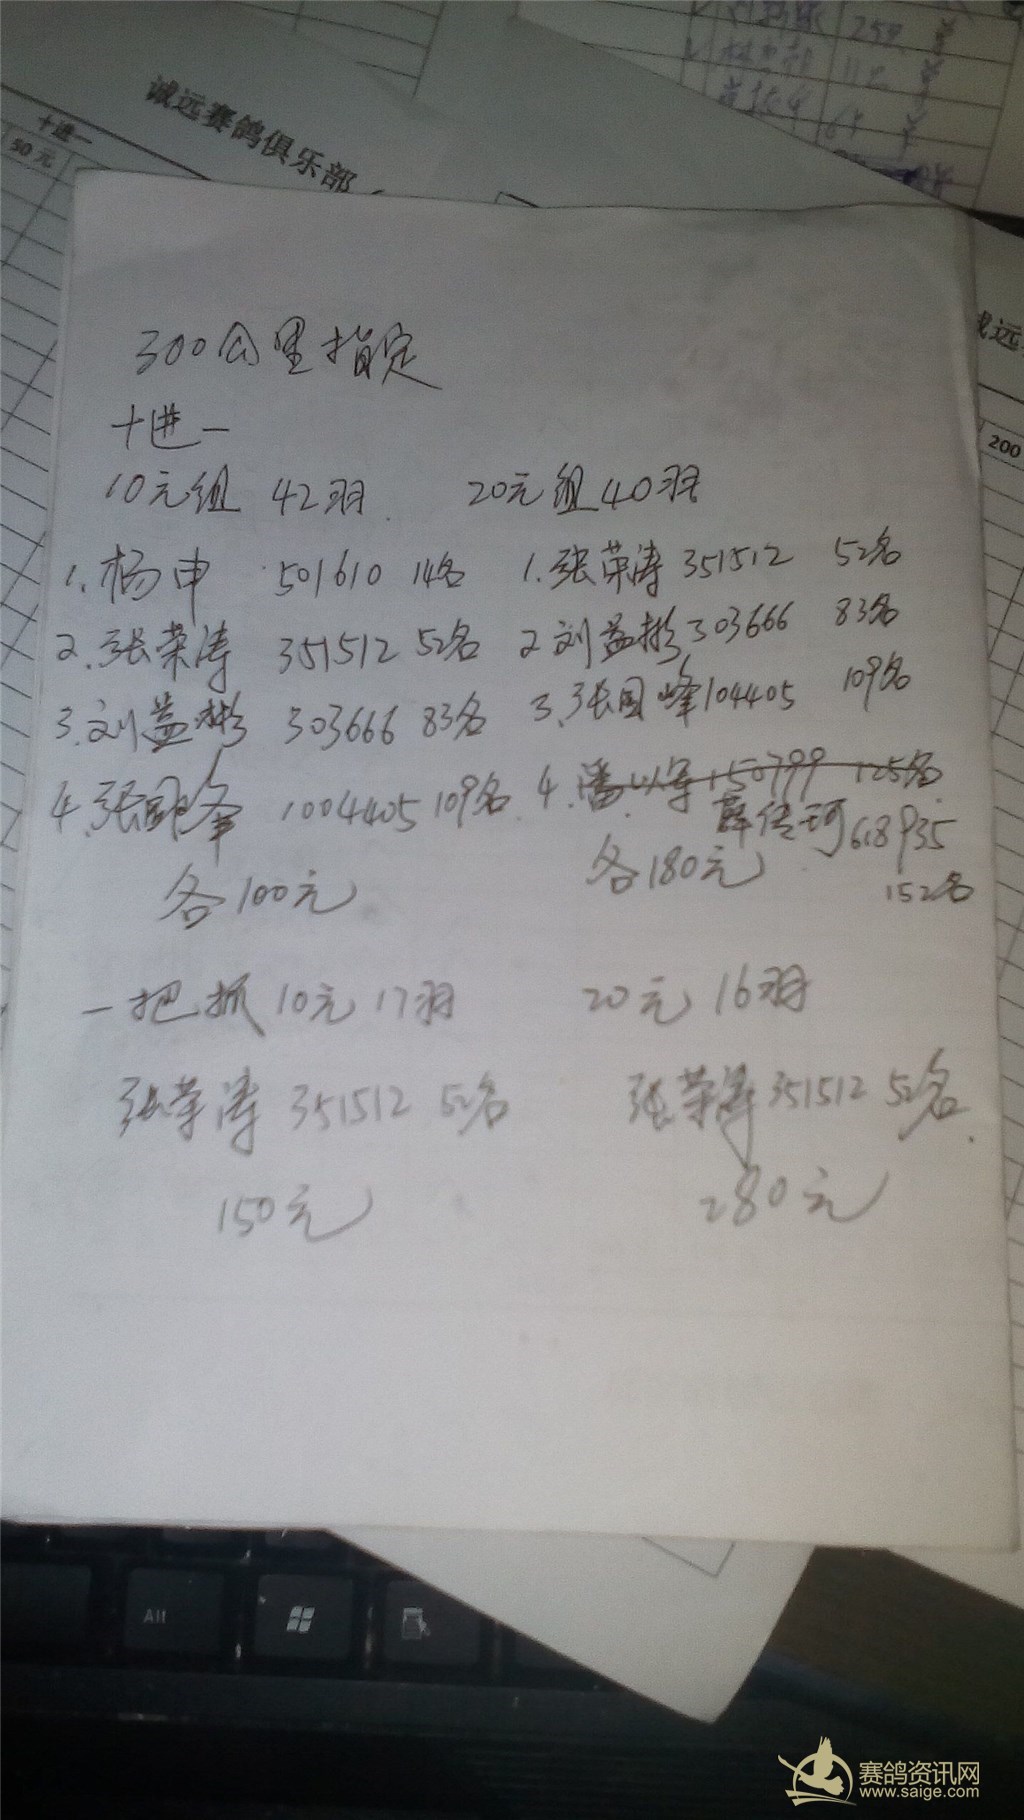 诚远赛鸽俱乐部
十进一
50元
200
诚远
300公里指定
十进一
10元组 42羽 20元组40羽
1.杨申 501610 14名 1.张荣涛 351512 52名
2.张荣涛 351512 52名 2刘益彬303666 83名
3.刘益彬 303666 83名 3.张国峰104405 109名
4.张国峰 1004405 109名 4.潘以军150799 125名
薛传珂618935
152名
各100元 各180元
一把抓10元17羽 20元 16羽
张荣涛 351512 52名 张荣涛351512 52名.
150元 280元
Alt
赛鸽资讯网
www.saige.com